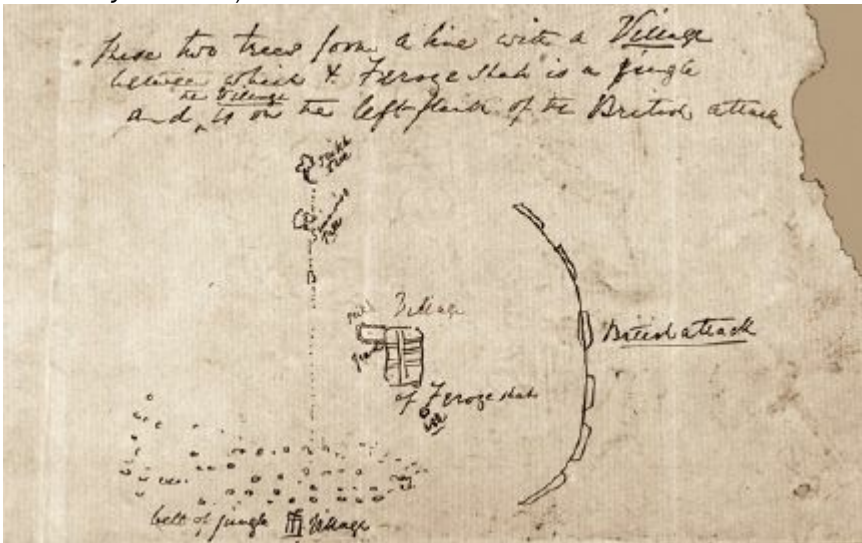 These two trees form a line with a Village
between which & Feroze shah is a jungle
the Village
and ^ is on the left flank of the British attack
tree
tree
Village
British attack
of Feroze shah
belt of jungle
Village